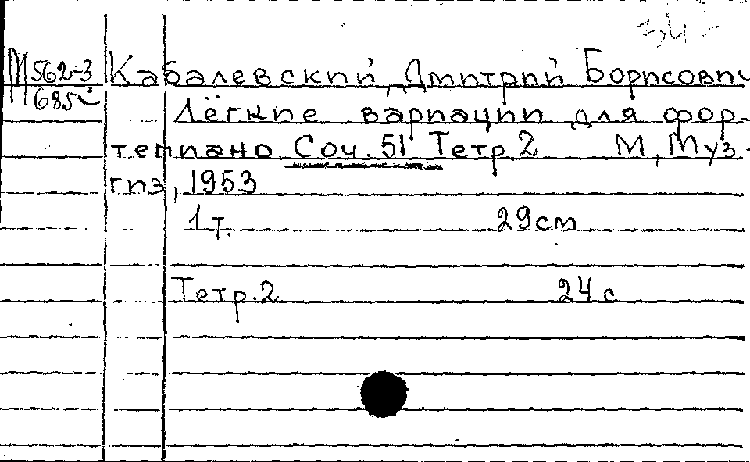 М562-3 Кабалевский, Дмитрий Борисови
685
Лёгкие вариации для фор-
тепиано Соч. 51 Тетр. 2 М, Муз-
гиз, 1953
1 т. 29 см
Тетр. 2 24 с